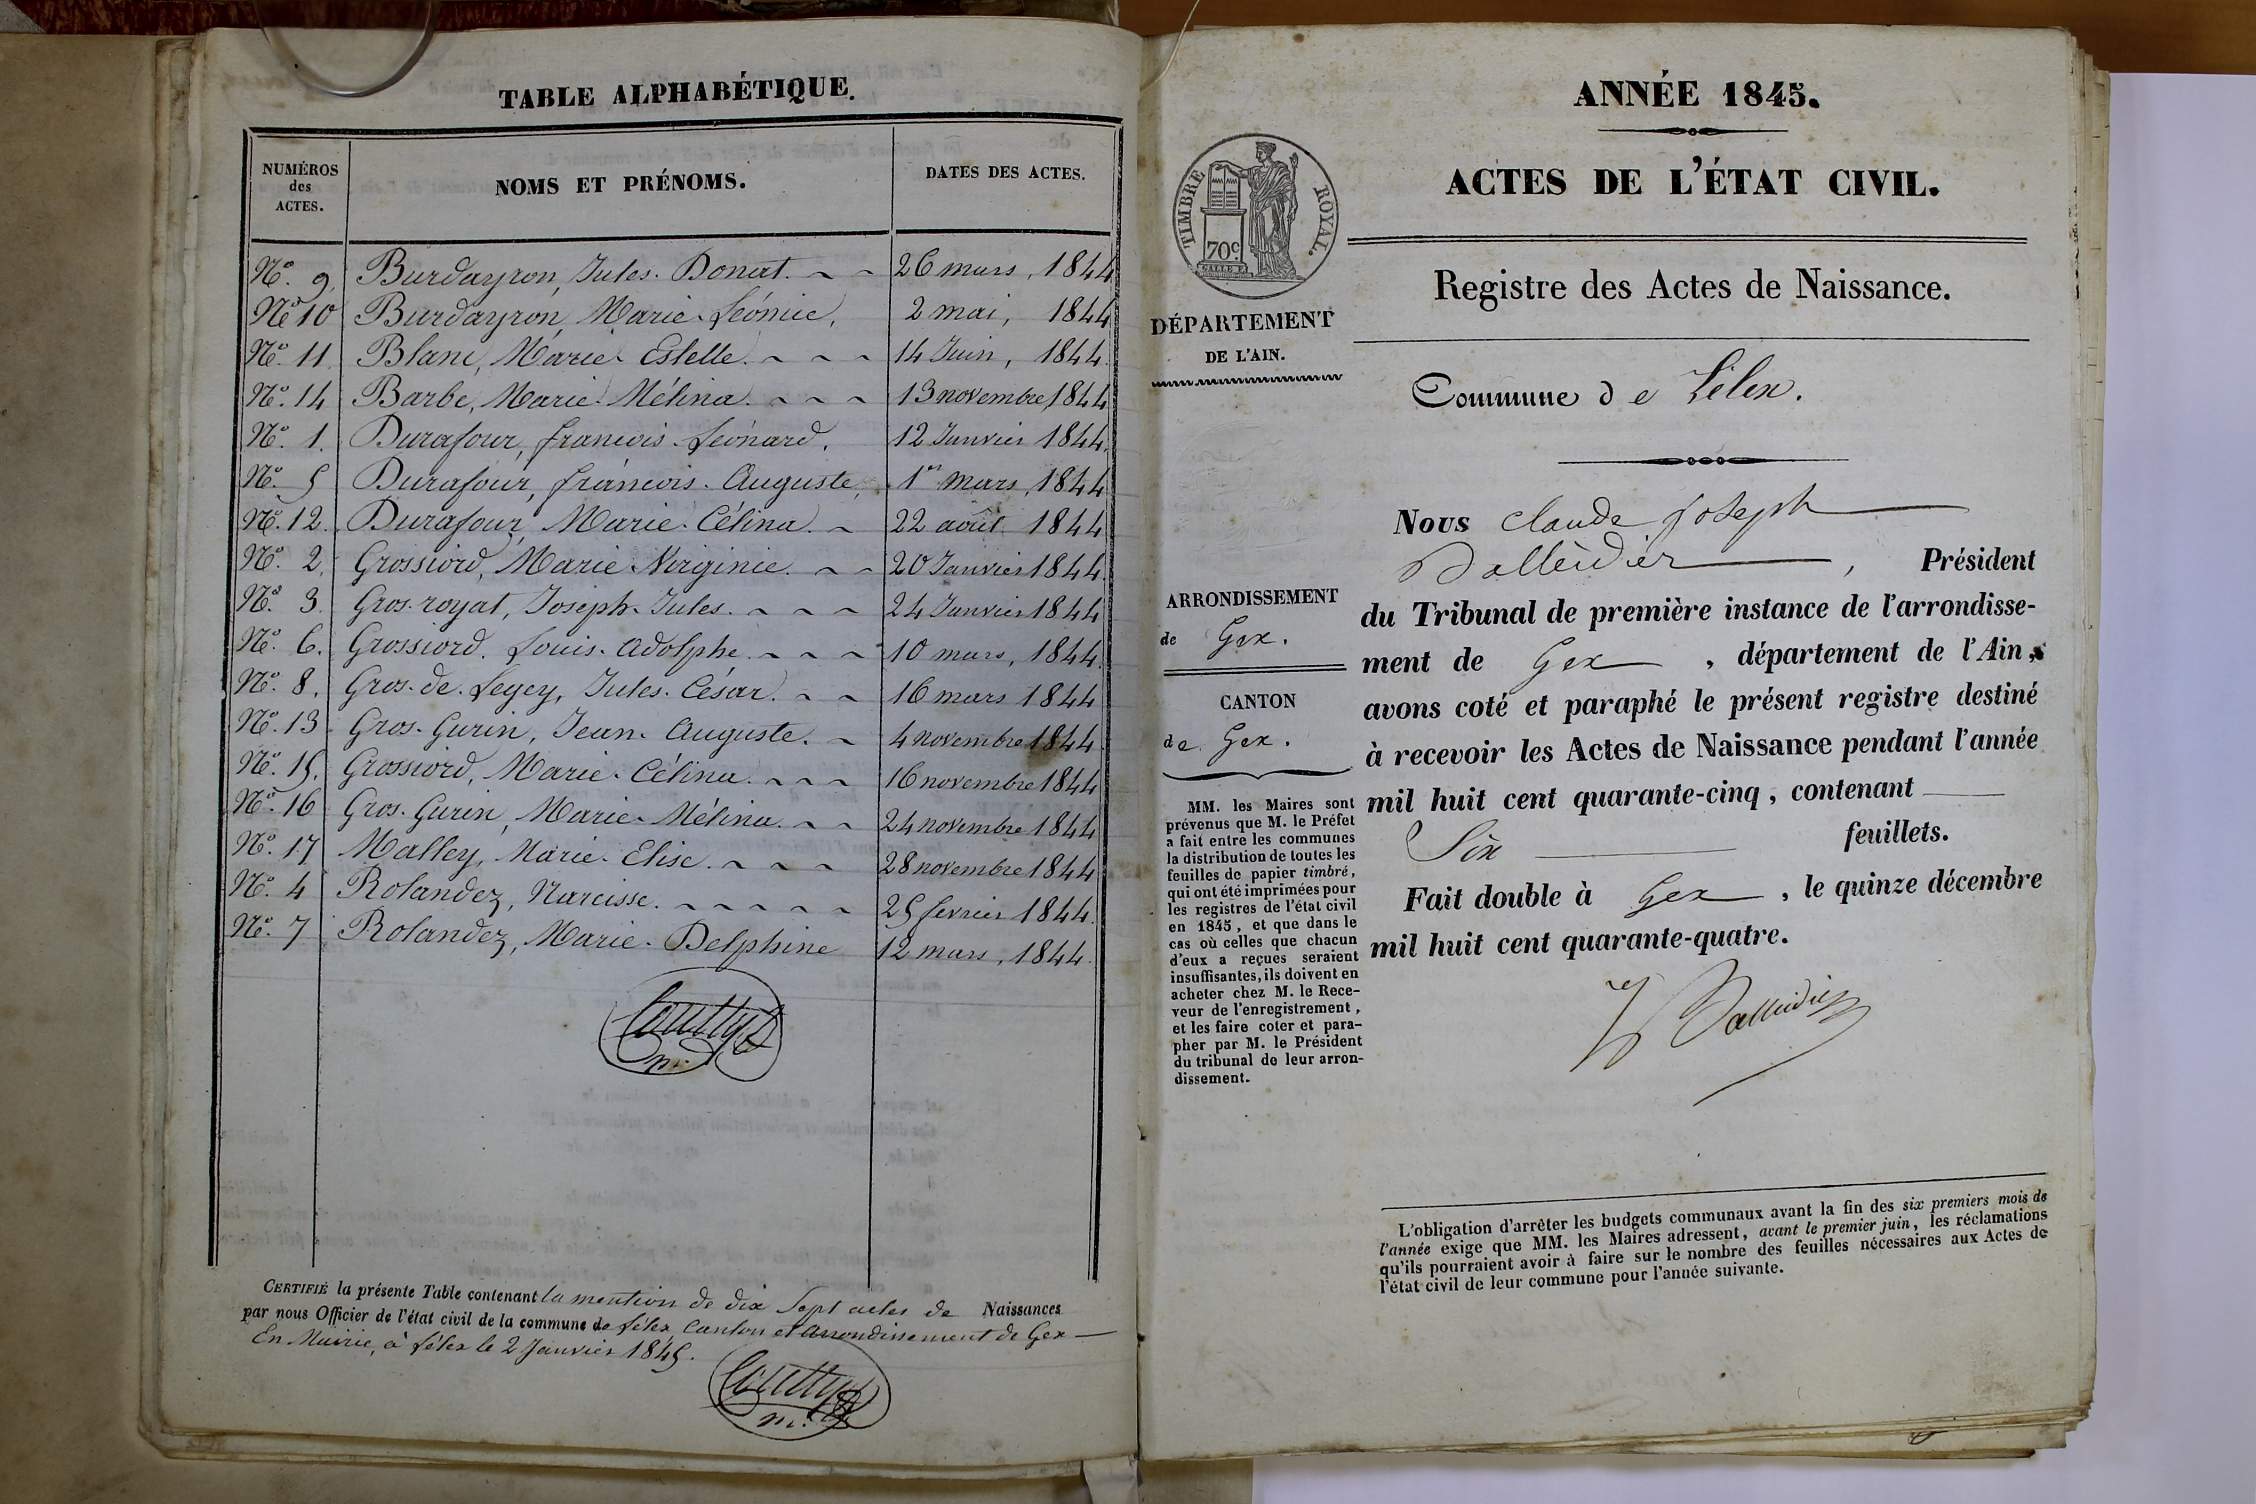 TABLE ALPHABÉTIQUE.
NUMÉROS
des
ACTES.
NOMS ET PRÉNOMS.
DATES DES ACTES.
No. 9. Burdayron, Jules. Donat. 26 mars, 1844
No 10 Burdayron, Marie. Léonie. 2 mai, 1844
No. 11. Blanc, Marie. Estelle. 14 Juin, 1844.
No. 14 Barbe, Marie. Mélina. 13 novembre, 1844
No. 1. Durafour, françois. Léonard. 12 Janvier 1844.
No. 5 Durafour, françois. Auguste, 1er mars, 1844
No. 12. Durafour, Marie. Célina. 22 août 1844
No. 2. Grossiord, Marie. Virginie. 20 Janvier 1844.
No. 3. Gros-royat, Joseph. Jules. 24 Janvier 1844
No. 6. Grossiord. Louis. Adolphe. 10 mars, 1844.
No. 8. Gros. de. Legey, Jules. César. 16 mars 1844
No. 13 Gros. Gurin, Jean. Auguste. 4 novembre 1844.
No. 15. Grossiord, Marie. Célina. 16 novembre 1844
No. 16 Gros. Gurin, Marie. Mélina. 24 novembre 1844
No. 17 Malley, Marie. Elise. 28 novembre 1844
No. 4 Rolandez, Narcisse. 25 fevrier 1844.
No. 7 Rolandez, Marie. Delphine 12 mars, 1844.
CERTIFIÉ la présente Table contenant la mention de dix sept actes de Naissances
par nous Officier de l'état civil de la commune de Lélex, Canton et Arrondissement de Gex
En Mairie, à Lélex le 2 Janvier 1845.
ANNÉE 1845.
ACTES DE L'ÉTAT CIVIL.
TIMBRE ROYAL.
70c
Registre des Actes de Naissance.
DÉPARTEMENT
DE L'AIN.
Commune de Lélex.
Nous Claude Joseph
Dalleidier, Président
du Tribunal de première instance de l'arrondisse-
ment de Gex, département de l'Ain,
avons coté et paraphé le présent registre destiné
à recevoir les Actes de Naissance pendant l'année
mil huit cent quarante-cinq, contenant
Six feuillets.
Fait double à Gex, le quinze décembre
mil huit cent quarante-quatre.
Dalleidier
ARRONDISSEMENT
de Gex.
CANTON
de Gex.
MM. les Maires sont
prévenus que M. le Préfet
a fait entre les communes
la distribution de toutes les
feuilles de papier timbré,
qui ont été imprimées pour
les registres de l'état civil
en 1845, et que dans le
cas où celles que chacun
d'eux a reçues seraient
insuffisantes, ils doivent en
acheter chez M. le Rece-
veur de l'enregistrement,
et les faire coter et para-
pher par M. le Président
du tribunal de leur arron-
dissement.
L'obligation d'arrêter les budgets communaux avant la fin des six premiers mois de
l'année exige que MM. les Maires adressent, avant le premier juin, les réclamations
qu'ils pourraient avoir à faire sur le nombre des feuilles nécessaires aux Actes de
l'état civil de leur commune pour l'année suivante.